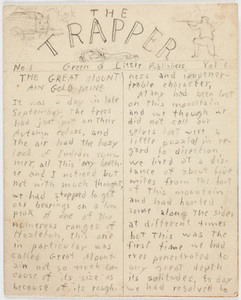 THE
TRAPPER
No. 1 Green & Little Publishers Vol 1.
THE GREAT MOUNT-
AIN GOLD MINE
It was a day in late
September. The trees
had just put on their
Autumn colors, and
The air had the hazy
look of Indian summ-
mer, all this my partn-
er and I noticed but
not with much thought,
we had stopped to get
our bearings on a low
peak of one of the
numerous ranges of
this one
in particular was
called Great Mount-
ain not so much be-
cause of its size is
because of its rough-
ness and impenetr-
trable character,
Many had been lost
on this mountain
and we though we
did not tell our-
selves lost were a
little puzzled in re-
gard to direction.
we lived at a dis-
tance of about five
miles from the foot
of this mountain,
and had hunted
some along the sides
at different times
but this was the
first time we had
ever penetrated to
any great depth
its solitudes, to day
we had resolved to